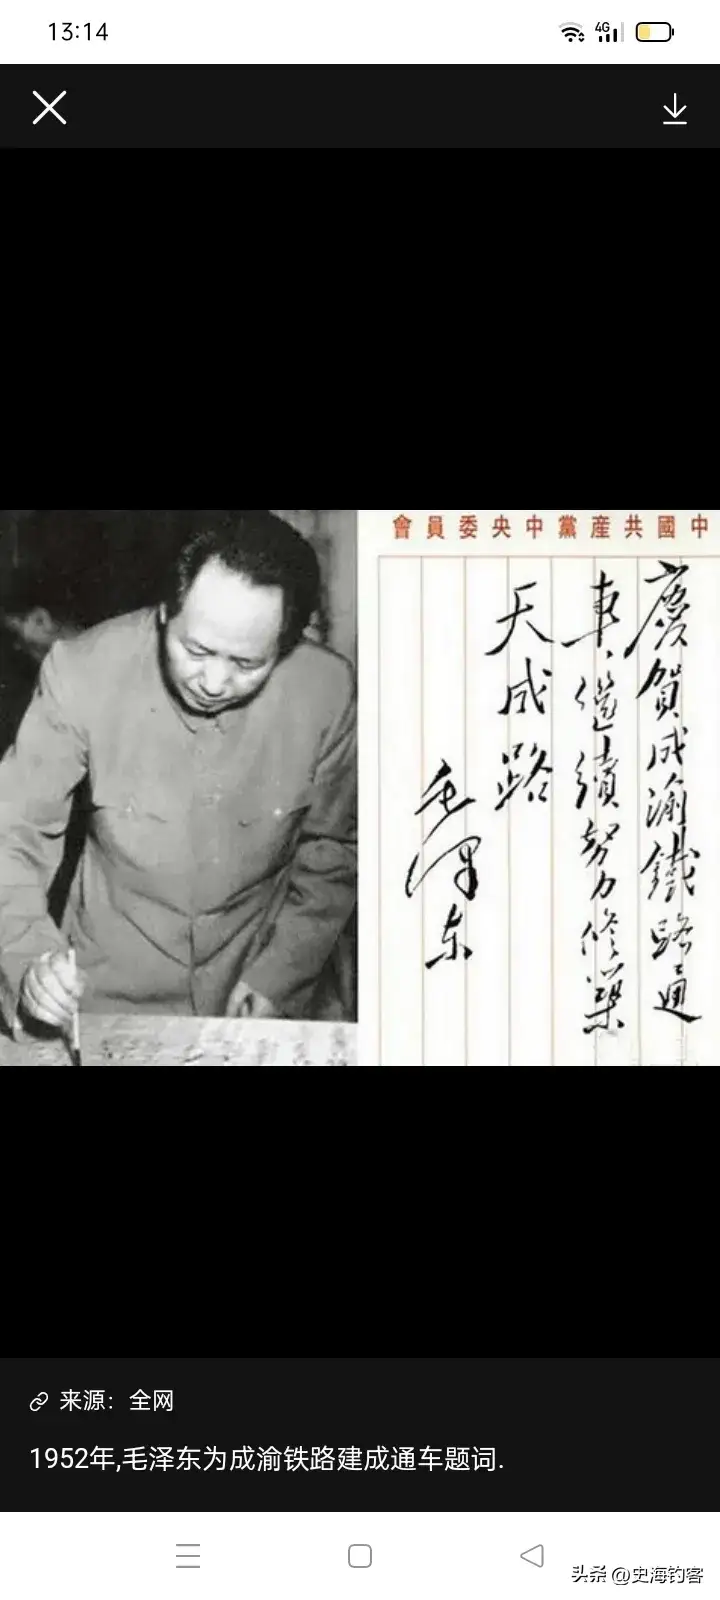 13:14
4G
中國共産黨中央委員會
慶賀成渝鐵路通
車，繼續努力修築
天成路
毛澤东
来源：全网
1952年,毛泽东为成渝铁路建成通车题词.
头条 @史海钓客